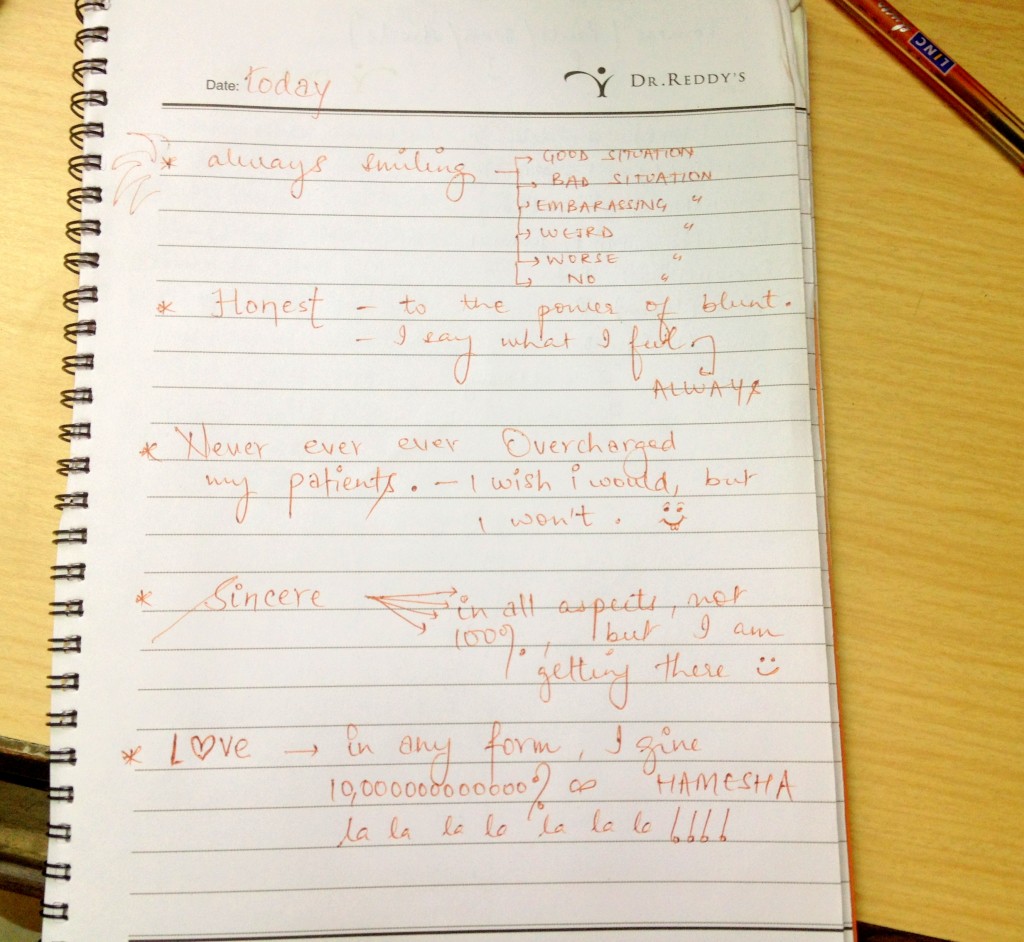 Date: today
DR.REDDY'S
LINC
* always smiling → GOOD SITUATION
→ BAD SITUATION
→ EMBARASSING "
→ WEIRD "
→ WORSE "
→ NO "
* Honest - to the power of blunt.
- I say what I feel
ALWAYS
* Never ever ever Overcharged
my patients. - I wish i would, but
I won't.
* Sincere → in all aspects, not
100%, but I am
getting there
* L♡ve → in any form, I give
10,000000000000% ∞ HAMESHA
la la la la la la la !!!!